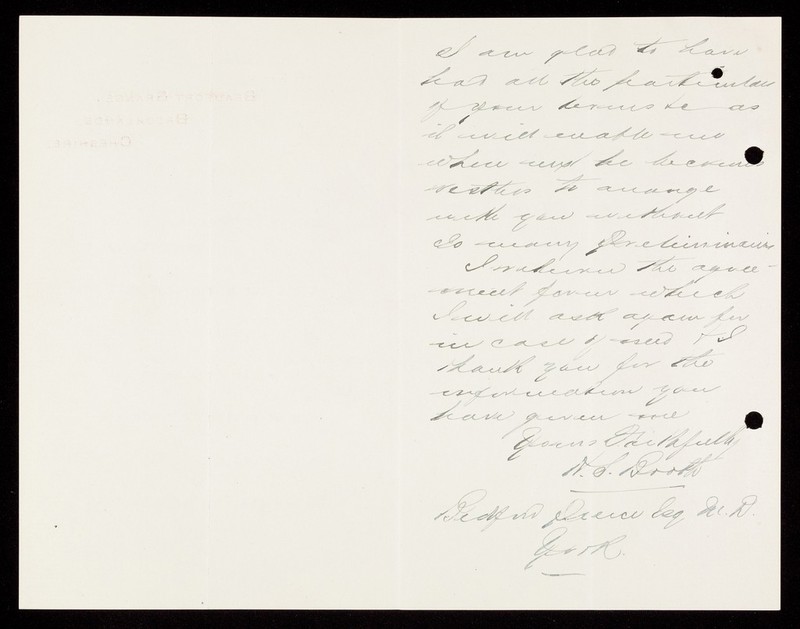 I am glad to have
had all the particulars
of your terms &c as
it will enable me
when next he becomes
restless to arrange
with you without
so many preliminaries
I return the agree-
ment form which
I will ask again for
in case of need & I
thank you for the
information you
have given me
Yours Faithfully
Booth
Bedford Pierce Esq M.D.
York.